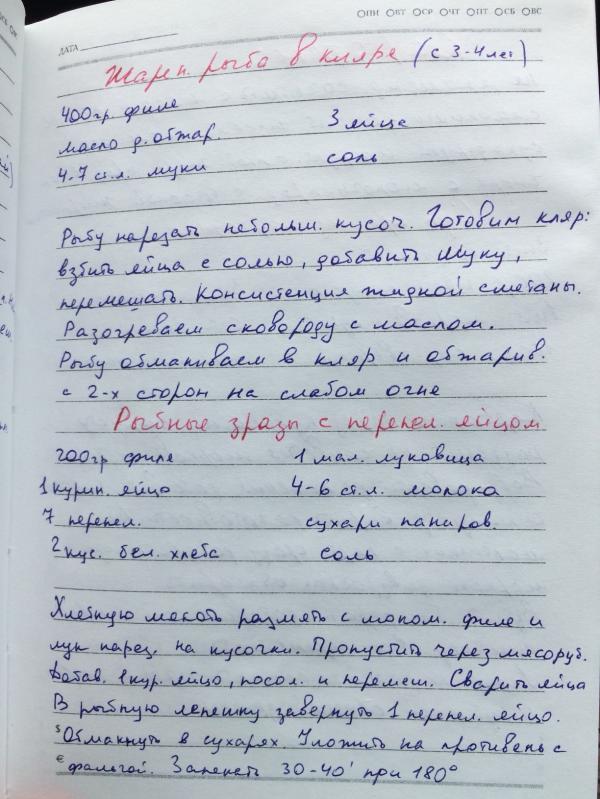 ПН ВТ СР ЧТ ПТ СБ ВС
ДАТА
Жарен. рыба в кляре (с 3-4 лет)
400гр. филе
масло д. обжар. 3 яйца
4-7 ст.л. муки соль
Рыбу нарезать небольш. кусоч. Готовим кляр:
взбить яйца с солью, добавить муку,
перемешать. Консистенция жидкой сметаны.
Разогреваем сковороду с маслом.
Рыбу обмакиваем в кляр и обжарив.
с 2-х сторон на слабом огне
Рыбные зразы с перепел. яйцом
200гр филе 1 мал. луковица
1 курин. яйцо 4-6 ст.л. молока
7 перепел. сухари паниров.
2 кус. бел. хлеба соль
Хлебную мякоть размять с молом. филе и
лук нарез. на кусочки. Пропустить через мясоруб.
Добав. 1 кур. яйцо, посол. и перемеш. Сварить яйца
В рыбную лепешку завернуть 1 перепел. яйцо.
Обмакнуть в сухарях. Уложить на противень с
фольгой. Запекать 30-40' при 180°